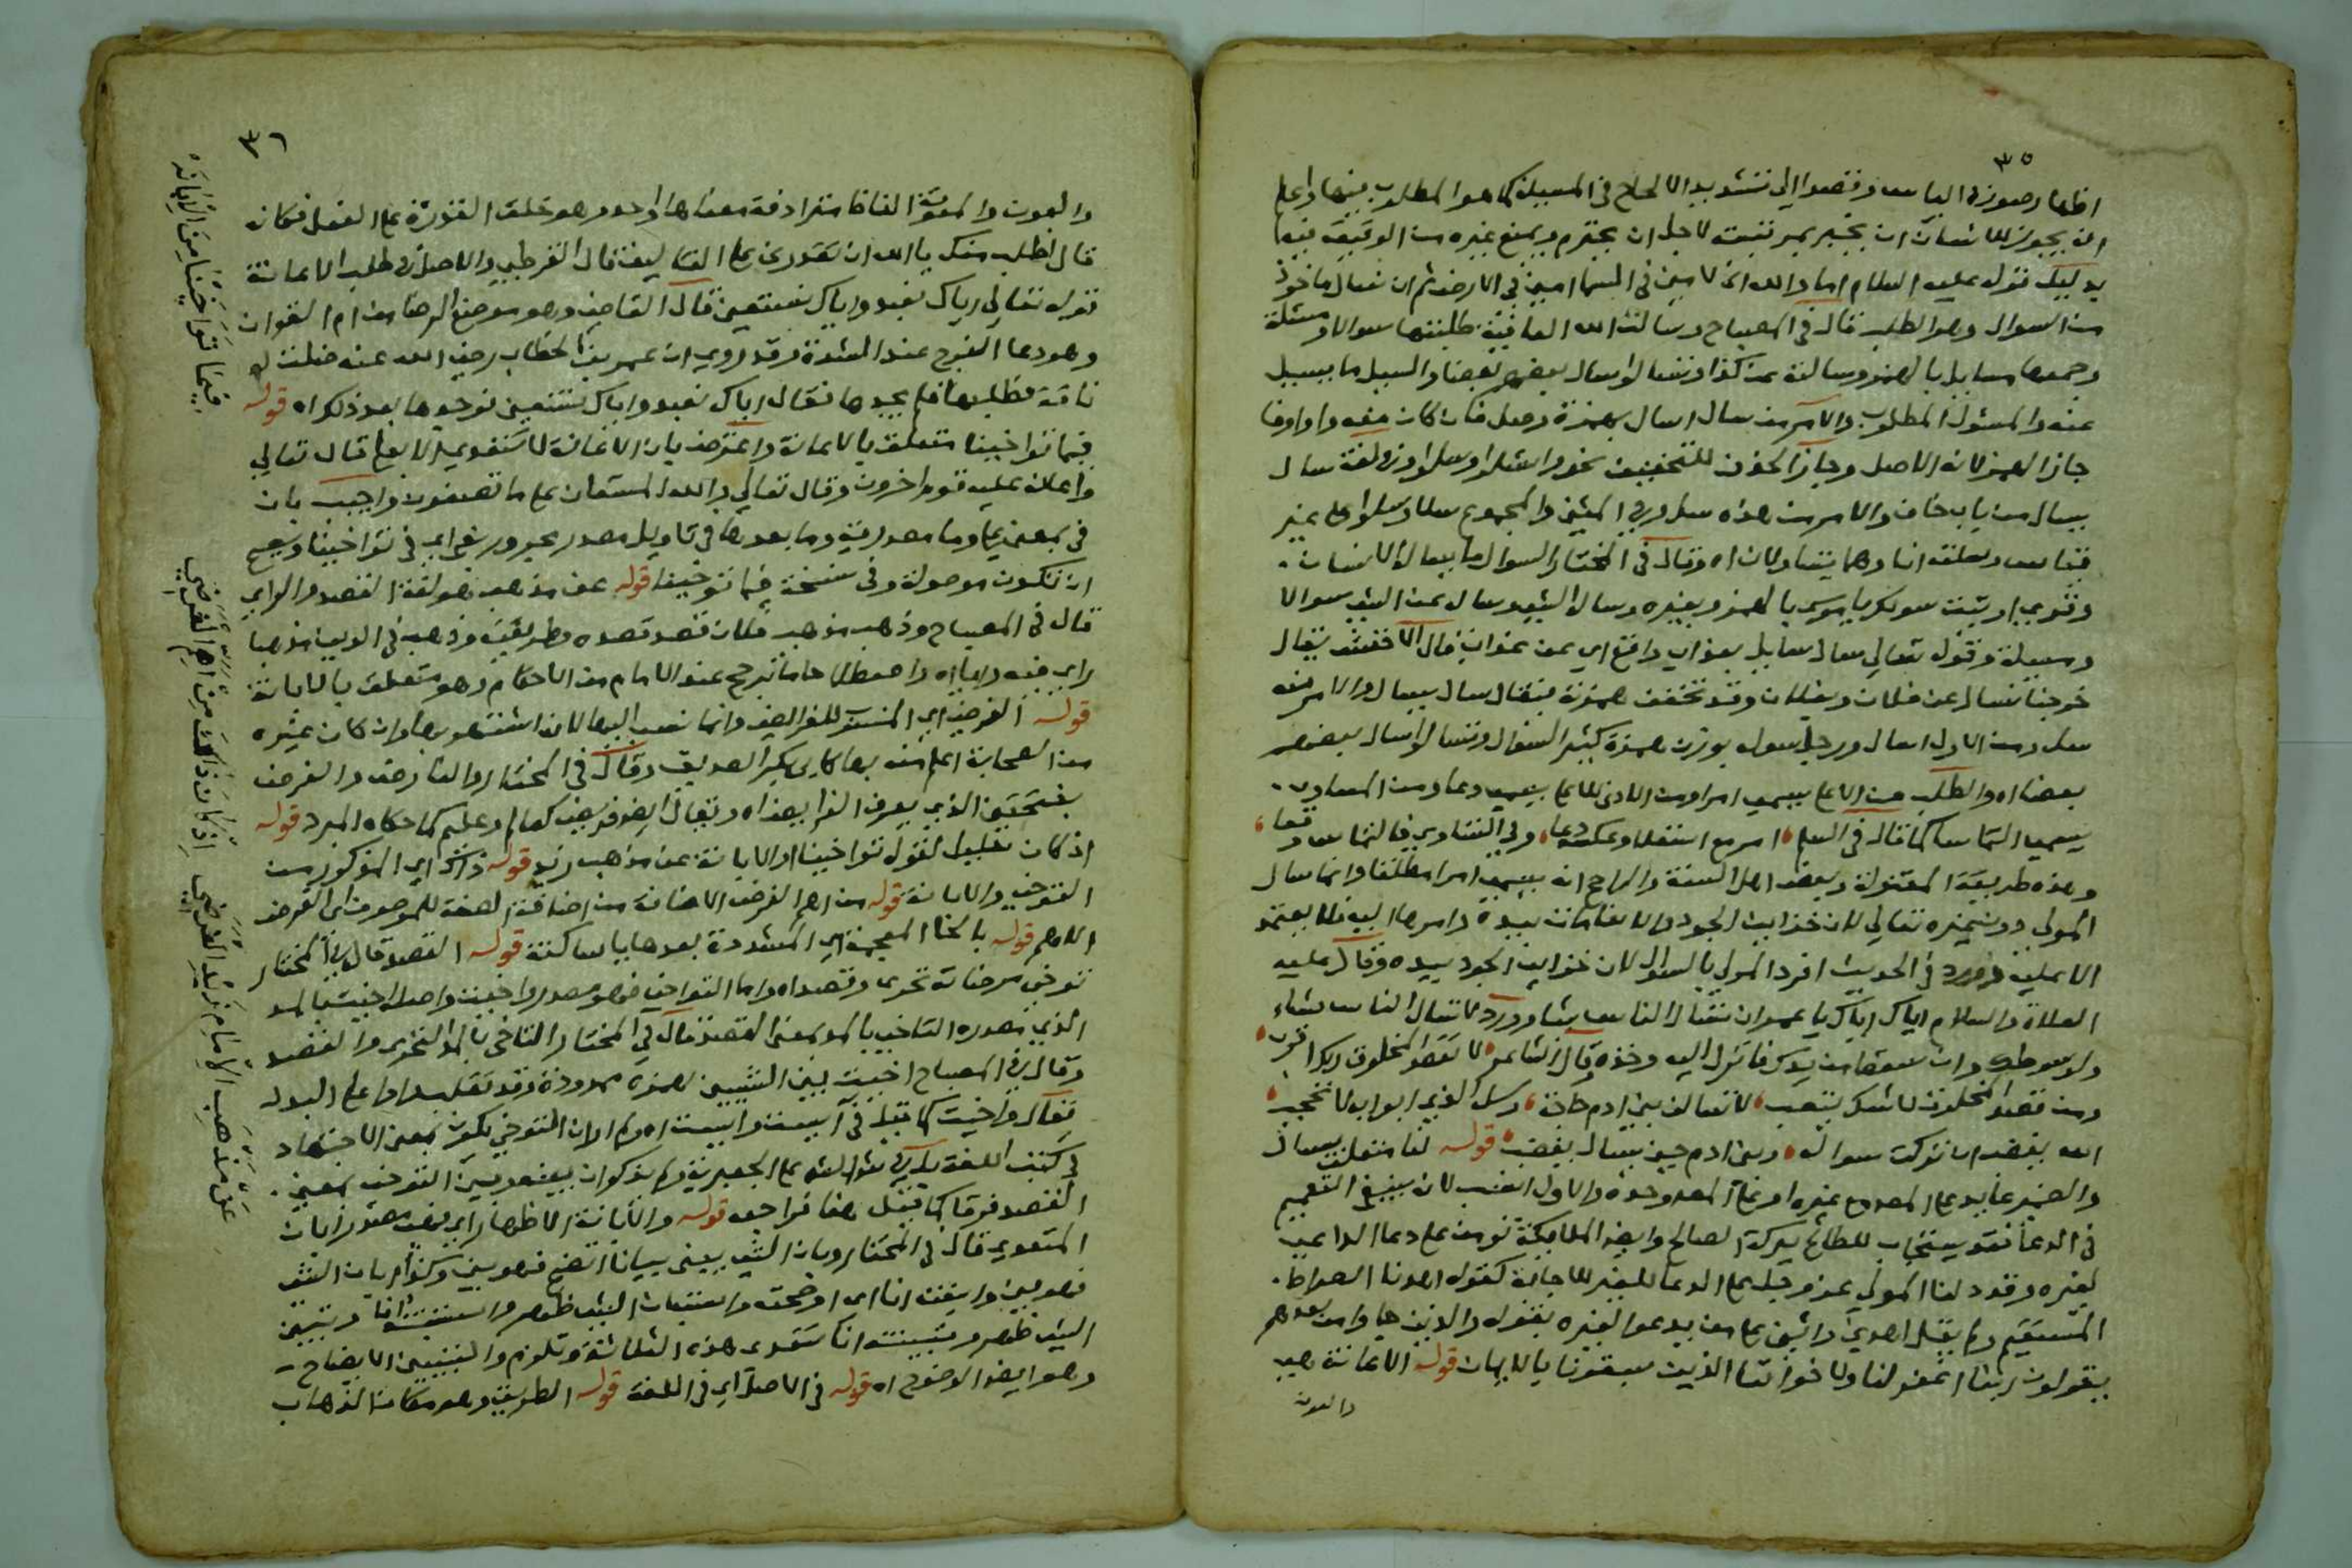 ٣٥
اظهار صورة الياس وقصدا الى تشديد الالحاح في المسيلة كما هو المطلوب فيها واعلم
انه يجوز للانسان ان يخبر بمرتبته لاجل ان يحترم ويمنع غيره من الوقيعة فيه
يدليل قوله عليه السلام اما والله اني لامين في السما امين في الارض ثم ان نسال ماخوذ
من السوال وهو الطلب قال في المصباح وسالت الله العافية طلبتها سوالا ومسئلة
وجمعها مسايل بالهمز وسالته عن كذا وتساالوا سال بعضهم بعضا والسيل ما يسيل
عنه والمسئول المطلوب والامر من سال اسال بهمزة وصل فان كان معه واو او فا
جاز الهمز لانه الاصل وجاز الحذف للتخفيف نحو واسئلوا وسلوا وفي لغة سال
يسال من باب خاف والامر من هذه سل وفي المثنى والمجموع سلا وسلوا على غير
قياس وسلته انا وهما يتساولان اه وقال في المختار السوال ما يساله الانسان .
وقري اوتيت سولك يا موسى بالهمز وبغيره وساله الشي وساله عن الشي سوالا
ومسيلة وقوله تعالى سال سايل بعذاب واقع اي عن عذاب قال الاخفش يقال
خرجنا نسال عن فلان وبفلان وقد تخفف همزته فيقال سال يسال والامر منه
سل ومن الاول اسال ورجل سولة بوزن همزة كثير السوال وتساالوا سال بعضهم
بعضا اه والطلب من الاعلى يسمى امرا ومن الادنى للاعلى يسمى دعا ومن المساوي .
يسمى التماسا كما قال في السلم امر مع استعلا وعكسه دعا وفي التساوي فالتماس وقعا
وهذه طريقة المعتزلة وبعض اهل السنة والراجح انه يسمى امرا مطلقا وانما سال
المولى دون غيره تعالى لان خزاين الجود والانعامات بيده وامرها اليه فلا يعتمد
الا عليه وورد في الحديث افرد المولى بالسوال لان خزاين الجود بيده وقال عليه
الصلاة والسلام اياك اياك يا عمر ان تسال الناس شيا وورد لا تسال الناس شيا
ولا سوطك وان سقط من يدك فانزل اليه وخذه قال الشاعر لا تقصد المخلوق ربك اقرب
ومن قصد المخلوق لا شك يتعب لا تسالن بني ادم حاجة وسل الذي ابوابه لا تحجب
الله يغضب ان تركت سواله وبني ادم حين يسال يغضب قوله لنا متعلق بنسال
والضمير عايد على المصدع غيره او على المص وحده والاول انسب لان ينبغي التعميم
في الدعا فقد يستجاب للطالح ببركة الصالح وايضا الملايكة تومن على دعا الداعي
لغيره وقد دلنا المولى عز وجل على الدعا للغير للاجابة كقوله اهدنا الصراط .
المستقيم ولم يقل اهدني واثنى على من يدعو لغيره بقوله والذين جاوا من بعدهم
يقولون ربنا اغفر لنا ولاخواننا الذين سبقونا بالايمان قوله الاعانة هي
والعون
٣٦
والعون والمعونة الفاظ مترادفة معناها واحد وهو خلق القدرة على الفعل فكانه
قال اطلب منك يا الله ان تقدرني على التاليف قال القرطبي والاصل في طلب الاعانة
قوله تعالى اياك نعبد واياك نستعين قال القاضي وهو موضع الرضا من ام القران
وهو دعا الفرج عند الشدة وقد روي ان عمر بن الخطاب رضي الله عنه ضلت له
ناقة فطلبها فلم يجدها فقال اياك نعبد واياك نستعين فوجدها بعد ذلك اه قوله
فيما تواخينا متعلق بالاعانة واعترض بان الاعانة لا تتعدى الا بعلى قال تعالى
واعانه عليه قوم اخرون وقال تعالى والله المستعان على ما تصفون واجيب بان
في بمعنى على وما مصدرية وما بعدها في تاويل مصدر مجرور بفي اي في تواخينا ويصح
ان تكون موصولة وفي نسخة فيما توخينا قوله عن مذهب هو لغة القصد والراي
قال في المصباح وذهب مذهب فلان قصد قصده وطريقته وذهب في الدين مذهبا
راي فيه رايا اه واصطلاحا ما ترجح عند الامام من الاحكام وهو متعلق بالابانة
قوله الفرضي اي المنسوب للفرايض وانما نسب اليها لانه اشتهر بها وان كان غيره
من الصحابة اعلم منه بها كابي بكر الصديق وقال في المختار والفارض والفرضي
بفتحتين الذي يعرف الفرايض اه ويقال ايضا فريض كعالم وعليم كما حكاه المبرد قوله
اذ كان تعليل لقوله تواخينا او الابانة عن مذهب زيد قوله ذاك اي المذكور من
التوخي والابانة قوله من اهم الغرض الاضافة من اضافة الصفة للموصوف اي الغرض
الاهم قوله بالخا المعجمة اي المشددة بعدها ياساكنة قوله القصد قال في المختار
توخى مرضاته تحرى وقصد اه واما التواخي فهو مصدر واخيت واصله اخيت بالمد
الذي مصدره التاخي بالمد بمعنى القصد قال في المختار التاخي بالمد التحري والقصد
وقال في المصباح اخيت بين الشيين بهمزة ممدودة وقد تقلب واوا على البدل
فيقال واخيت كما قيل في آسيت واسيت اه ولم ار ان التوخي يكون بمعنى الاجتهاد
في كتب اللغة
القصد فرقا كما قيل هنا فراجعه قوله والابانة الاظهار اي فهي مصدر ابان
المتعدي قال في المختار وبان الشي يبين بيانا اتضح فهو بين وكذا ابان الشي
فهو مبين وابنته انا اي اوضحته واستبان الشي ظهر واستبنته انا وتبين
الشي ظهر وتبينته انا تتعدى هذه الثلاثة وتلزم والتبيين الايضاح
وهو ايضا الوضوح اه قوله في الاصل اي في اللغة قوله الطريق وهو مكان الذهاب
فيما تَوَاخَيْنَا مِنَ الاِبَانَهْ
عَنْ مَذْهَبِ الاِمَامِ زَيْدِ الفَرَضِي اِذْ كَانَ ذَاكَ مِنْ اَهَمِّ الغَرَضِ